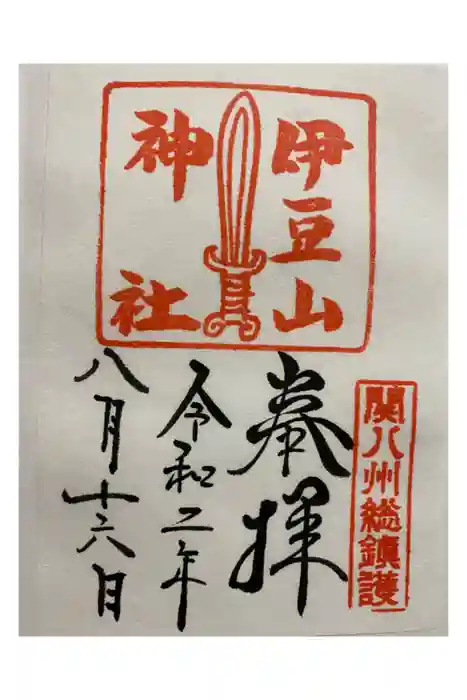 伊豆山
神社
関八州総鎮護
奉拝
令和二年
八月十六日